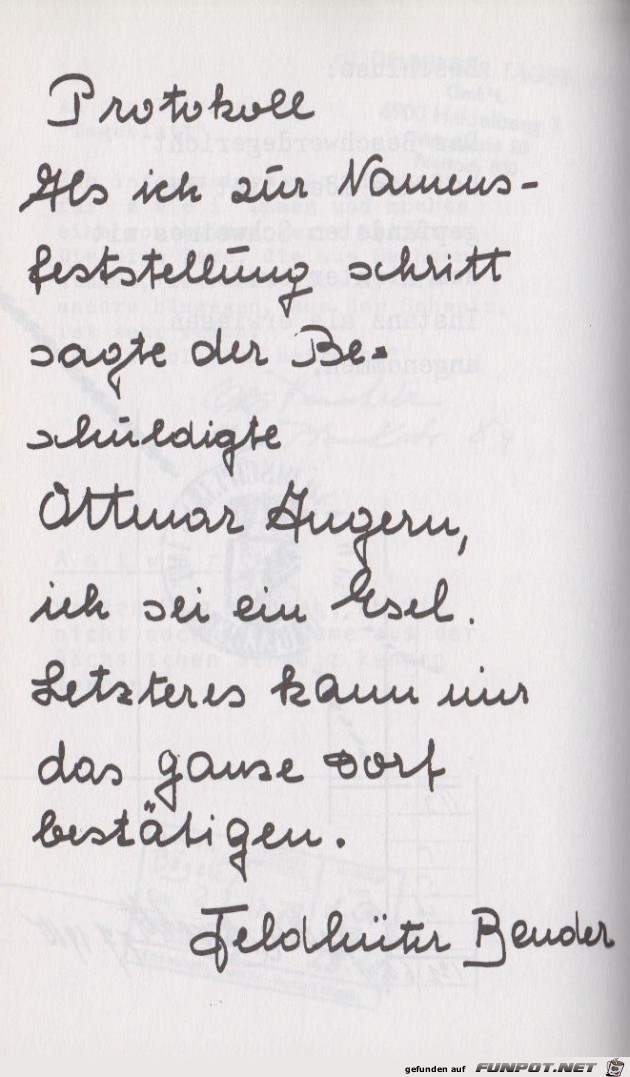 Protokoll
Als ich zur Namens-
feststellung schritt
sagte der Be-
schuldigte
Ottmar Angern,
ich sei ein Esel.
Letzteres kann mir
das ganse Dorf
bestätigen.
Feldhüter Bender
gefunden auf FUNPOT.NET